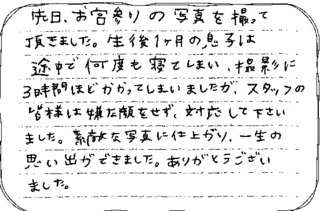 先日、お宮参りの写真を撮って
頂きました。生後1ヶ月の息子は
途中で何度も寝てしまい、撮影に
3時間ほどかかってしまいましたが、スタッフの
皆様は嫌な顔をせず、対応して下さい
ました。素敵な写真に仕上がり、一生の
思い出ができました。ありがとうござい
ました。